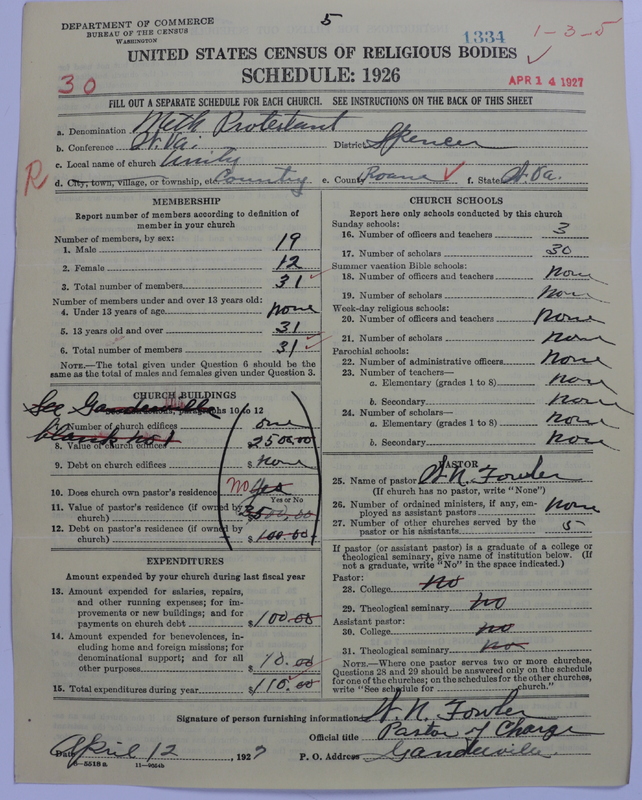 5
DEPARTMENT OF COMMERCE
BUREAU OF THE CENSUS
WASHINGTON
1334
1-3-5
UNITED STATES CENSUS OF RELIGIOUS BODIES
SCHEDULE: 1926
30
APR 14 1927
FILL OUT A SEPARATE SCHEDULE FOR EACH CHURCH. SEE INSTRUCTIONS ON THE BACK OF THIS SHEET
a. Denomination Meth Protestant
b. Conference W. Va. District Spencer
c. Local name of church Unity
R
d. City, town, village, or township, etc Country e. County Roane f. State W. Va.
MEMBERSHIP
Report number of members according to definition of member in your church
Number of members, by sex:
1. Male 19
2. Female 12
3. Total number of members 31
Number of members under and over 13 years old:
4. Under 13 years of age none
5. 13 years old and over 31
6. Total number of members 31
NOTE.—The total given under Question 6 should be the same as the total of males and females given under Question 3.
CHURCH BUILDINGS
See Gandeeville
paragraphs 10 to 12
blank no 1
7. Number of church edifices one
8. Value of church edifices $2500.00
9. Debt on church edifices $ none
10. Does church own pastor's residence No yes
Yes or No
11. Value of pastor's residence (if owned by church) $3500.00
12. Debt on pastor's residence (if owned by church) $100.00
EXPENDITURES
Amount expended by your church during last fiscal year
13. Amount expended for salaries, repairs, and other running expenses; for improvements or new buildings; and for payments on church debt $100.00
14. Amount expended for benevolences, including home and foreign missions; for denominational support; and for all other purposes $10.00
15. Total expenditures during year $110.00
CHURCH SCHOOLS
Report here only schools conducted by this church
Sunday schools:
16. Number of officers and teachers 3
17. Number of scholars 30
Summer vacation Bible schools:
18. Number of officers and teachers none
19. Number of scholars none
Week-day religious schools:
20. Number of officers and teachers none
21. Number of scholars none
Parochial schools:
22. Number of administrative officers none
23. Number of teachers—
a. Elementary (grades 1 to 8) none
b. Secondary none
24. Number of scholars—
a. Elementary (grades 1 to 8) none
b. Secondary none
PASTOR
25. Name of pastor W. N. Fowler
(If church has no pastor, write "None")
26. Number of ordained ministers, if any, employed as assistant pastors none
27. Number of other churches served by the pastor or his assistants 5
If pastor (or assistant pastor) is a graduate of a college or theological seminary, give name of institution below. (If not a graduate, write "No" in the space indicated.)
Pastor:
28. College no
29. Theological seminary no
Assistant pastor:
30. College no
31. Theological seminary no
NOTE.—Where one pastor serves two or more churches, Questions 28 and 29 should be answered only on the schedule for one of the churches; on the schedules for the other churches, write "See schedule for church."
Signature of person furnishing information W. N. Fowler
Official title Pastor of Charge
Date April 12, 1927 P. O. Address Gandeeville
8-5518a 11-9554b